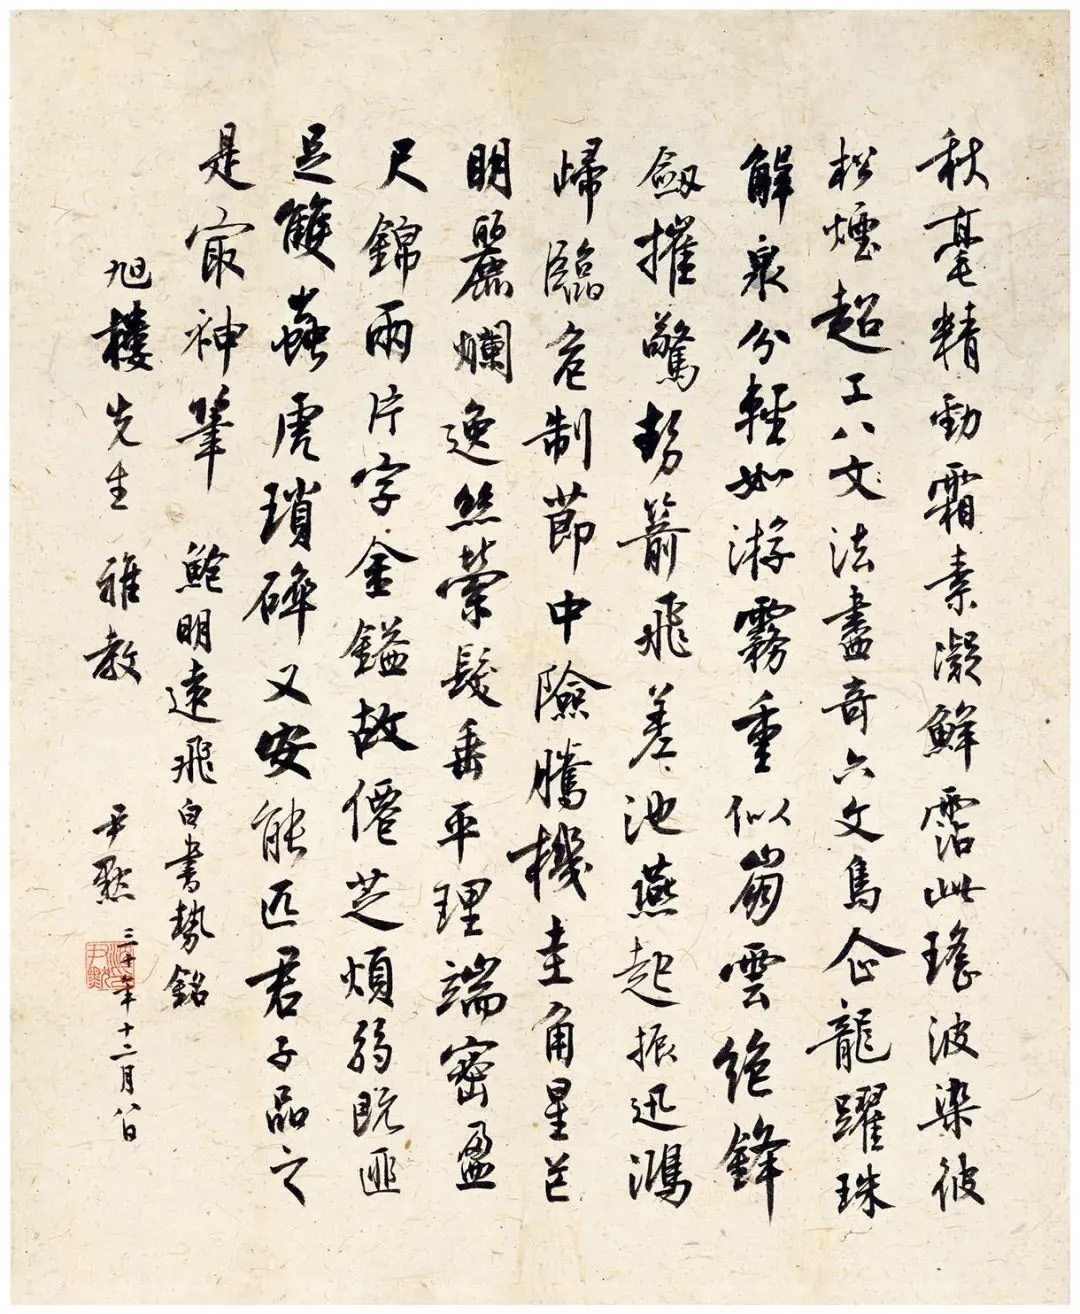 秋毫精勁霜素凝鮮霑此瑤波染彼
松煙超工八文法盡奇六文鳥企龍躍珠
解泉分輕如游霧重似崩雲絕鋒
劔摧驚勢箭飛差池燕起振迅鴻
歸臨危制節中險騰機圭角星芒
明麗爛逸絲縈髮垂平理端密盈
尺錦兩片字金鎰故僊芝煩弱既匪
足雙蟲虎瑣碎又安能匹君子品之
是㝡神筆 鮑明遠飛白書勢銘
旭樓先生 雅教
尹默 三十年十二月八日
沈尹默